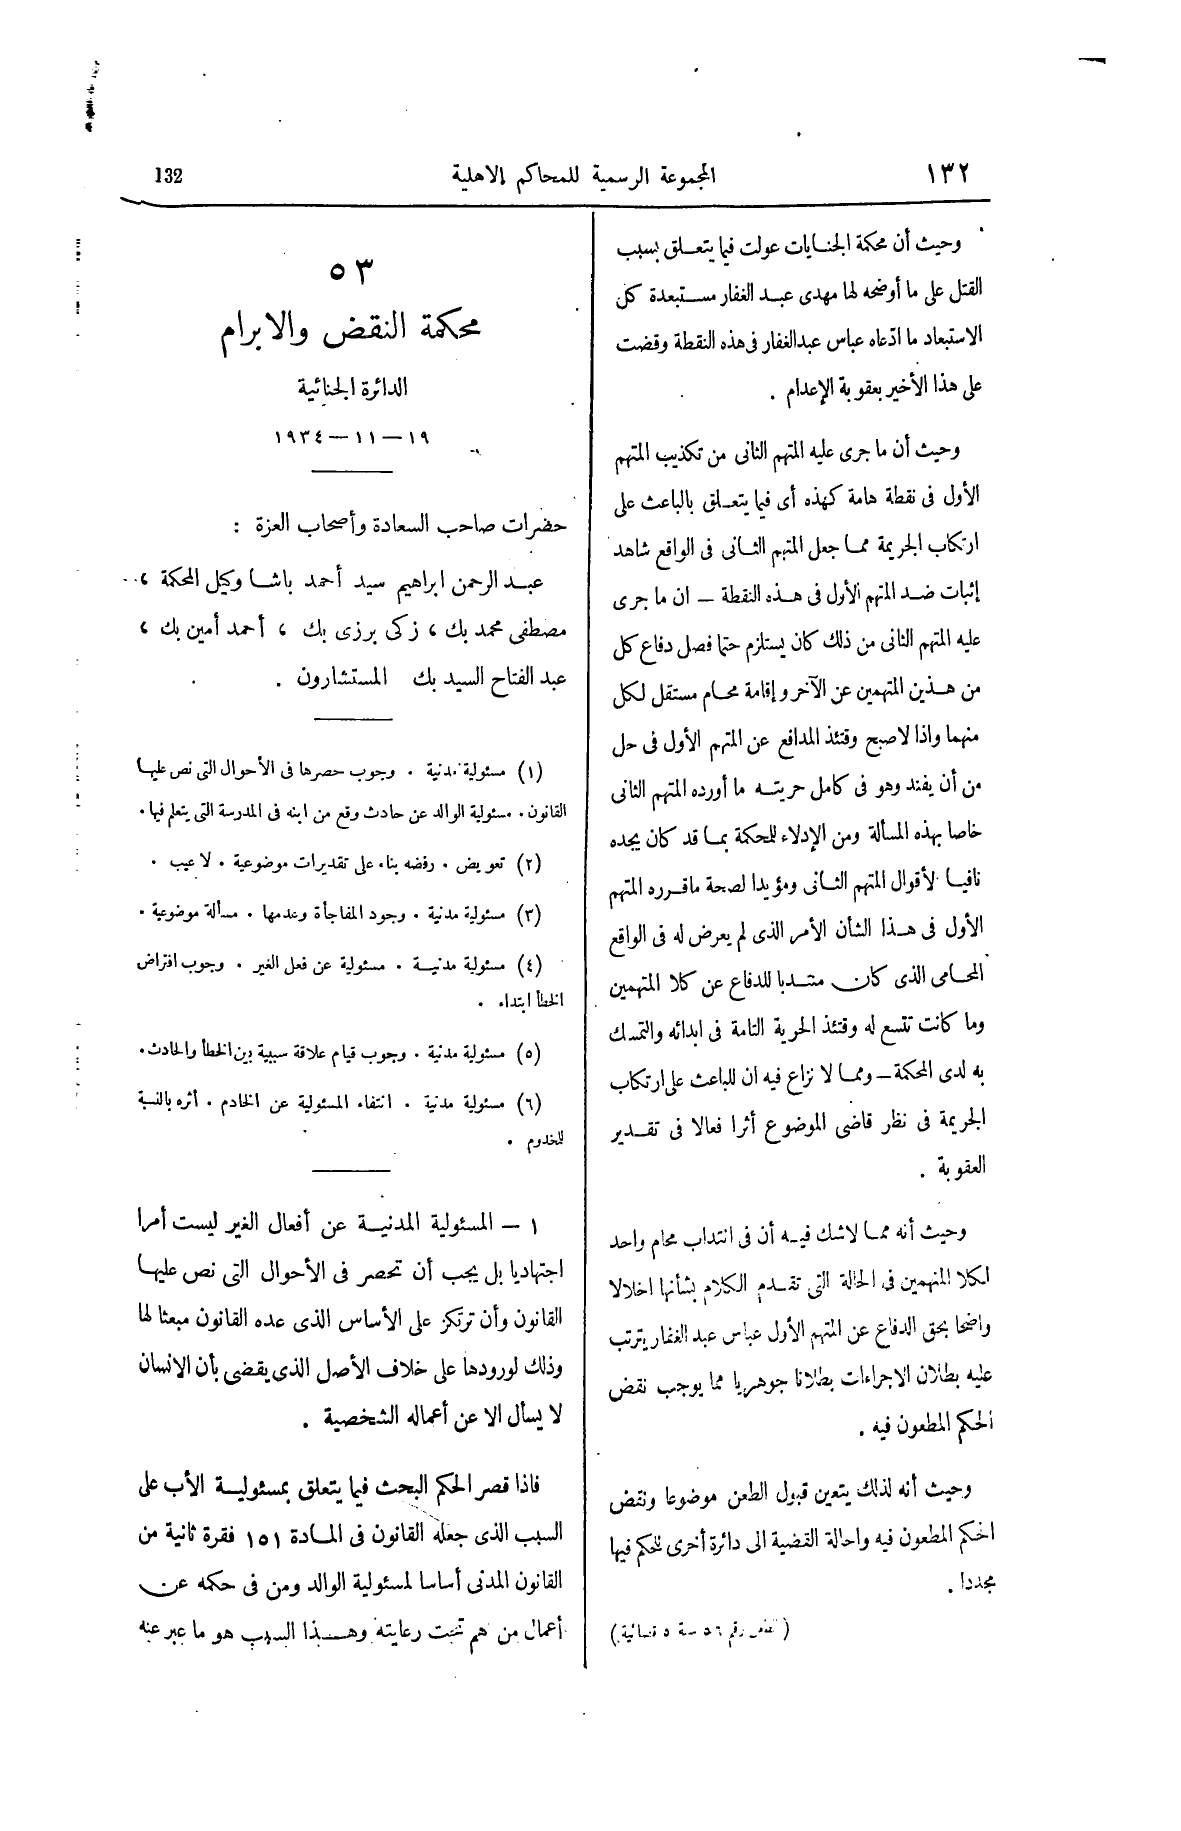 ١٣٢
المجموعة الرسمية للمحاكم الاهلية
132
وحيث أن محكمة الجنايات عولت فيما يتعلق بسبب
القتل على ما أوضحه لها مهدى عبد الغفار مستبعدة كل
الاستبعاد ما ادّعاه عباس عبدالغفار فى هذه النقطة وقضت
على هذا الأخير بعقوبة الإعدام .
وحيث أن ما جرى عليه المتهم الثانى من تكذيب المتهم
الأول فى نقطة هامة كهذه أى فيما يتعلق بالباعث على
ارتكاب الجريمة مما جعل المتهم الثانى فى الواقع شاهد
إثبات ضد المتهم الأول فى هذه النقطة – ان ما جرى
عليه المتهم الثانى من ذلك كان يستلزم حتما فصل دفاع كل
من هذين المتهمين عن الآخر وإقامة محام مستقل لكل
منهما واذا لاصبح وقتئذ المدافع عن المتهم الأول فى حل
من أن يفند وهو فى كامل حريته ما أورده المتهم الثانى
خاصا بهذه المسألة ومن الإدلاء للمحكمة بما قد كان يجده
نافيا لأقوال المتهم الثانى ومؤيدا لصحة ماقرره المتهم
الأول فى هذا الشأن الأمر الذى لم يعرض له فى الواقع
المحامى الذى كان منتدبا للدفاع عن كلا المتهمين
وما كانت تتسع له وقتئذ الحرية التامة فى ابدائه والتمسك
به لدى المحكمة – ومما لا نزاع فيه ان للباعث على ارتكاب
الجريمة فى نظر قاضى الموضوع أثرا فعالا فى تقدير
العقوبة .
وحيث أنه مما لاشك فيه أن فى انتداب محام واحد
لكلا المتهمين فى الحالة التى تقدم الكلام بشأنها اخلالا
واضحا بحق الدفاع عن المتهم الأول عباس عبد الغفار يترتب
عليه بطلان الاجراءات بطلانا جوهريا مما يوجب نقض
الحكم المطعون فيه .
وحيث أنه لذلك يتعين قبول الطعن موضوعا ونقض
الحكم المطعون فيه واحالة القضية الى دائرة أخرى للحكم فيها
مجددا .
( نقض رقم ٥٦ سنة ٥ قضائية )
٥٣
محكمة النقض والابرام
الدائرة الجنائية
١٩ – ١١ – ١٩٣٤
حضرات صاحب السعادة وأصحاب العزة :
عبد الرحمن ابراهيم سيد أحمد باشا وكيل المحكمة ،
مصطفى محمد بك ، زكى برزى بك ، أحمد أمين بك ،
عبد الفتاح السيد بك المستشارون .
(١) مسئولية مدنية . وجوب حصرها فى الأحوال التى نص عليها
القانون . مسئولية الوالد عن حادث وقع من ابنه فى المدرسة التى يتعلم فيها .
(٢) تعويض . رفضه بناء على تقديرات موضوعية . لا عيب .
(٣) مسئولية مدنية . وجود المفاجأة وعدمها . مسألة موضوعية .
(٤) مسئولية مدنية . مسئولية عن فعل الغير . وجوب افتراض
الخطأ ابتداء .
(٥) مسئولية مدنية . وجوب قيام علاقة سببية بين الخطأ والحادث .
(٦) مسئولية مدنية . انتفاء المسئولية عن الخادم . أثره بالنسبة
للمخدوم .
١ – المسئولية المدنية عن أفعال الغير ليست أمرا
اجتهاديا بل يجب أن تحصر فى الأحوال التى نص عليها
القانون وأن ترتكز على الأساس الذى عده القانون مبعثا لها
وذلك لورودها على خلاف الأصل الذى يقضى بأن الانسان
لا يسأل الا عن أعماله الشخصية .
فاذا قصر الحكم البحث فيما يتعلق بمسئولية الأب على
السبب الذى جعله القانون فى المادة ١٥١ فقرة ثانية من
القانون المدنى أساسا لمسئولية الوالد ومن فى حكمه عن
أعمال من هم تحت رعايته وهذا السبب هو ما عبر عنه